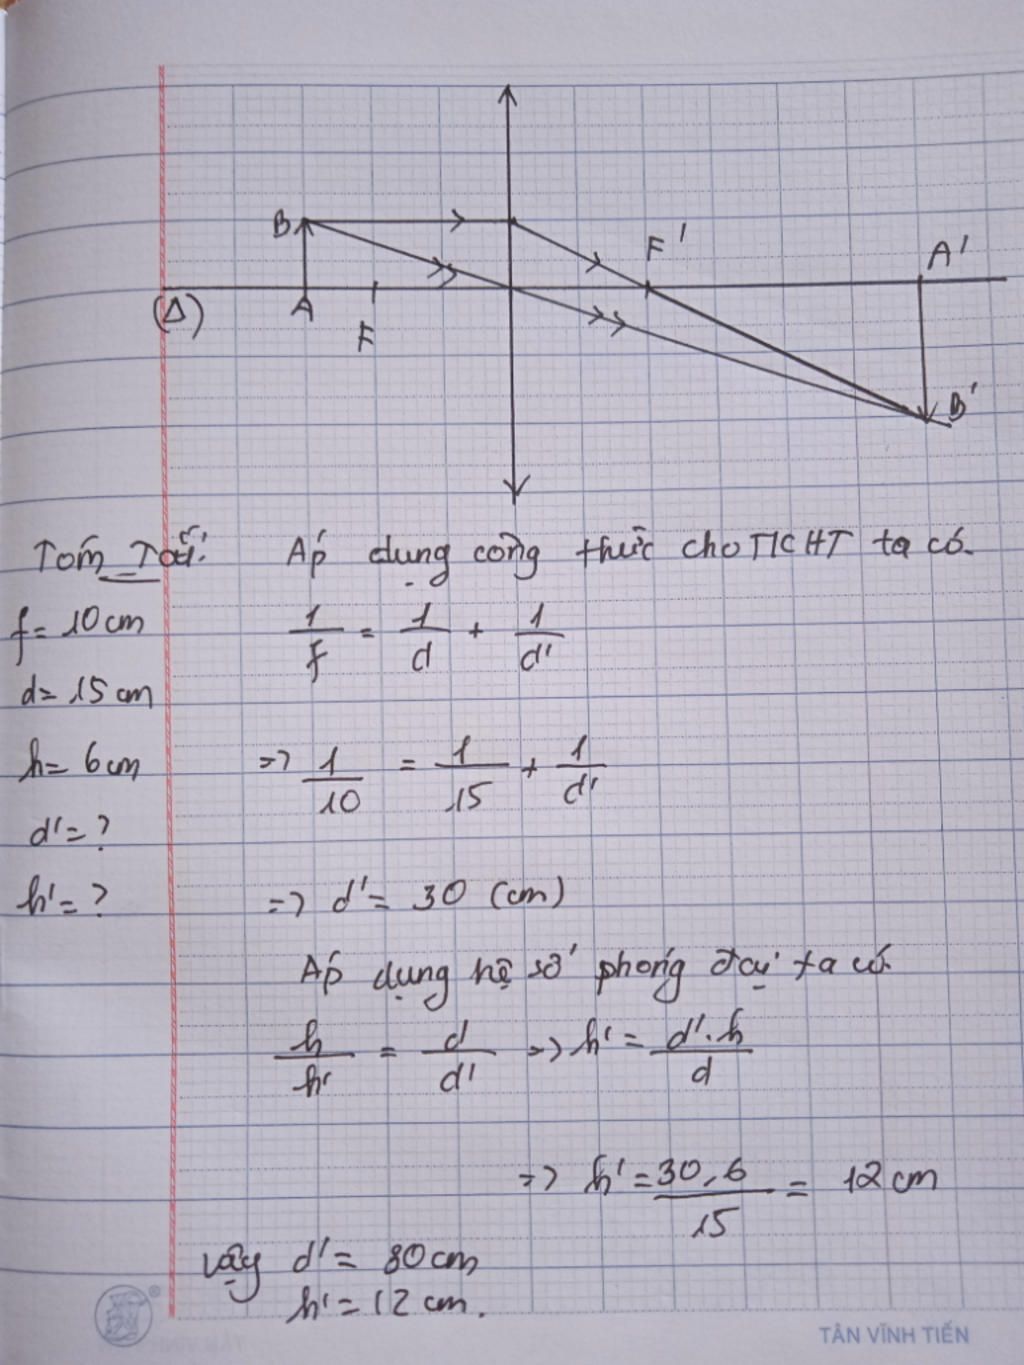 B
F'
A'
(Δ)
A
F
B'
Tóm Tắt:
f = 10 cm
d = 15 cm
h = 6 cm
d' = ?
h' = ?
Áp dụng công thức cho TKHT ta có.
1/f = 1/d + 1/d'
=> 1/10 = 1/15 + 1/d'
=> d' = 30 (cm)
Áp dụng hệ số phóng đại ta có
h/h' = d/d' => h' = d'.h/d
=> h' = 30.6/15 = 12 cm
Vậy d' = 30 cm
h' = 12 cm.
TÂN VĨNH TIẾN